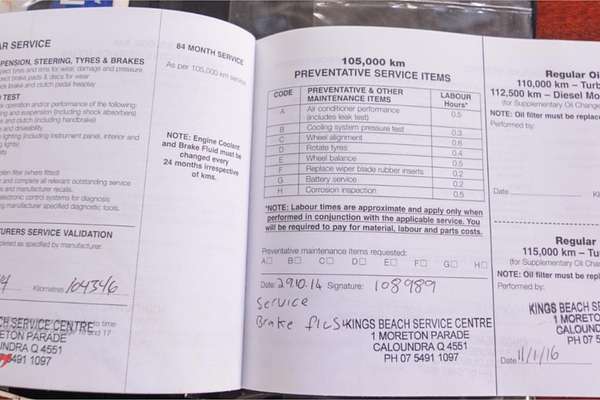 AR SERVICE
PENSION, STEERING, TYRES & BRAKES
pect tyres and rims for wear, damage and pressure
pect brake pads & discs for wear
ck brake and clutch pedal freeplay
D TEST
k operation and/or performance of the following:
ring and suspension (including shock absorbers)
es and clutch (including handbrake)
e and driveability.
e lighting (including instrument panel, interior and
ng lights)
ollen filter (where fitted)
and complete all relevant outstanding service
s and manufacturer recalls.
electronic control systems for diagnosis
ng manufacturer specified diagnostic tools.
TURERS SERVICE VALIDATION
mpleted as specified by manufacturer.
Kilometres 104346
CH SERVICE CENTRE
RETON PARADE
UNDRA Q 4551
5491 1097
84 MONTH SERVICE
As per 105,000 km service
NOTE: Engine Coolant
and Brake Fluid must be
changed every
24 months irrespective
of kms.
105,000 km
PREVENTATIVE SERVICE ITEMS
CODE PREVENTATIVE & OTHER MAINTENANCE ITEMS LABOUR Hours*
A Air conditioner performance (includes leak test) 0.5
B Cooling system pressure test 0.3
C Wheel alignment 0.6
D Rotate tyres 0.4
E Wheel balance 0.5
F Replace wiper blade rubber inserts 0.2
G Battery service 0.2
H Corrosion inspection 0.5
*NOTE: Labour times are approximate and apply only when
performed in conjunction with the applicable service. You
will be required to pay for material, labour and parts costs.
Preventative maintenance items requested:
A☐ B☐ C☐ D☐ E☐ F☐ G☐ H☐
Date: 29.10.14 Signature: 108989
Service
Brake
KINGS BEACH SERVICE CENTRE
1 MORETON PARADE
CALOUNDRA Q 4551
PH 07 5491 1097
Regular Oi
110,000 km – Turb
112,500 km – Diesel Mo
(for Supplementary Oil Chang
NOTE: Oil filter must be replac
Performed by:
Date K
Regular
115,000 km – Tur
(for Supplementary Oil Chan
NOTE: Oil filter must be repl
Performed by:
KINGS BEACH SERV
1 MORETON P
CALOUNDR
PH 07 5
Date 11/1/16